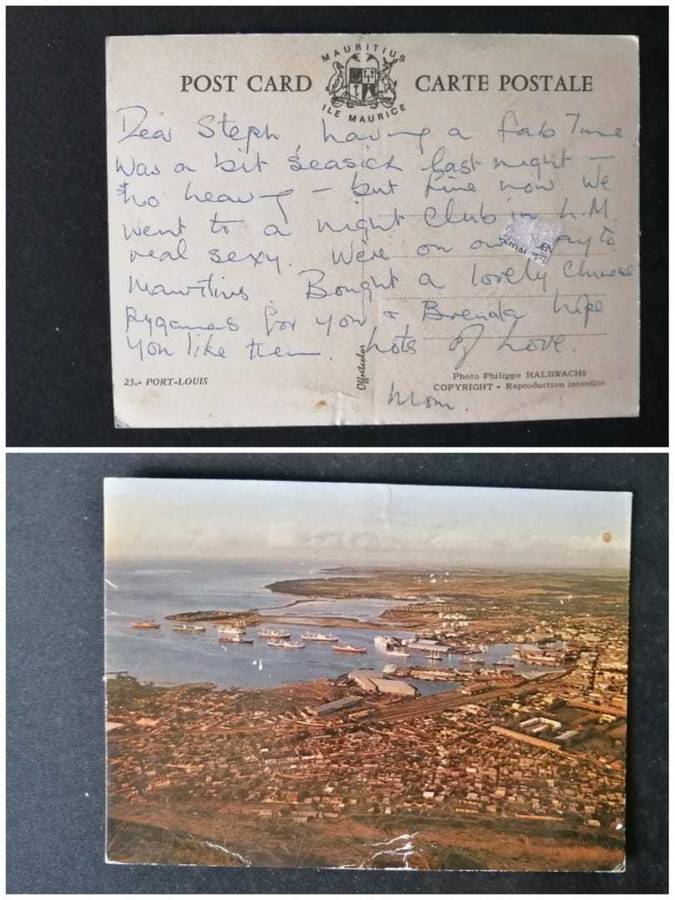 MAURITIUS
POST CARD CARTE POSTALE
ILE MAURICE
Dear Steph, having a fab Time
was a bit seasick last night –
no heavy – but fine now. We
went to a night club in L.M.
real sexy. We're on our way to
Mauritius. Bought a lovely Chinese
Pygamas for you & Brenda hope
you like them. Lots of Love.
Mom.
23.- PORT-LOUIS
Photo Philippe HALBWACHS
COPYRIGHT - Reproduction interdite